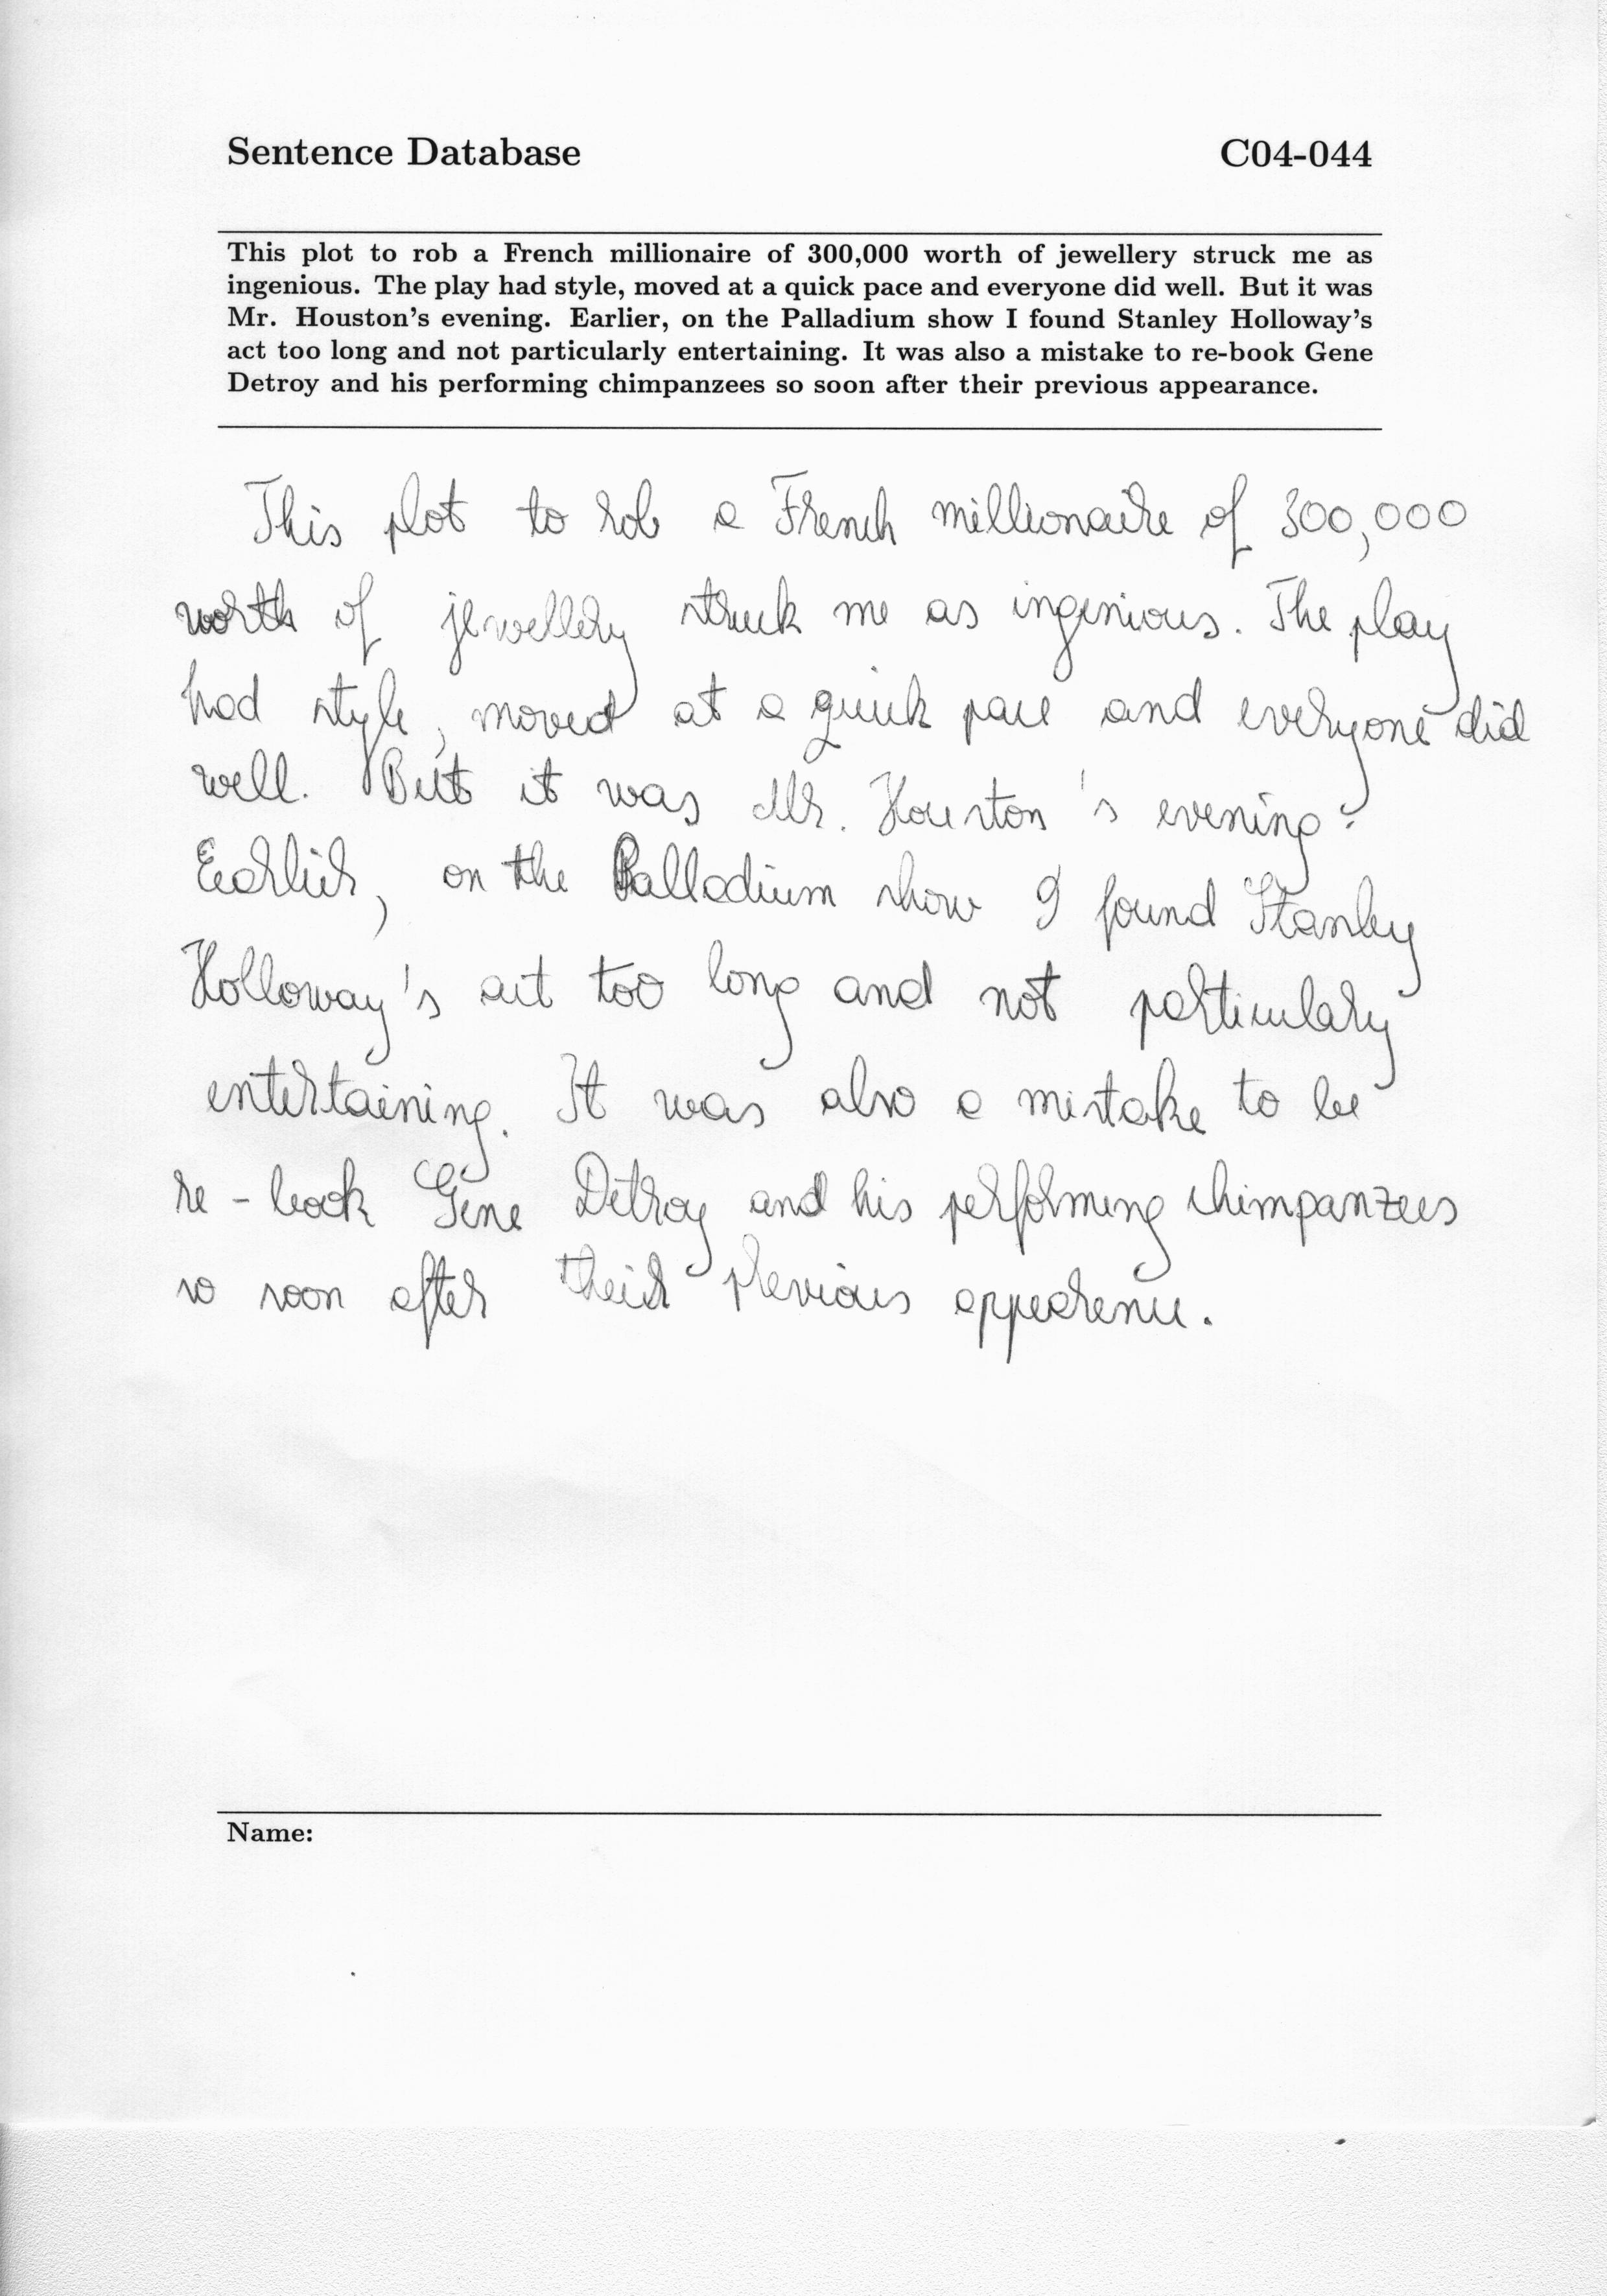 Sentence Database C04-044
This plot to rob a French millionaire of 300,000 worth of jewellery struck me as
ingenious. The play had style, moved at a quick pace and everyone did well. But it was
Mr. Houston's evening. Earlier, on the Palladium show I found Stanley Holloway's
act too long and not particularly entertaining. It was also a mistake to re-book Gene
Detroy and his performing chimpanzees so soon after their previous appearance.
This plot to rob a French millionaire of 300,000
worth of jewellery struck me as ingenious. The play
had style, moved at a quick pace and everyone did
well. But it was Mr. Houston's evening.
Earlier, on the Palladium show I found Stanley
Holloway's act too long and not particulary
entertaining. It was also a mistake to be
re-book Gene Detroy and his performing chimpanzees
so soon after their previous appearence.
Name: